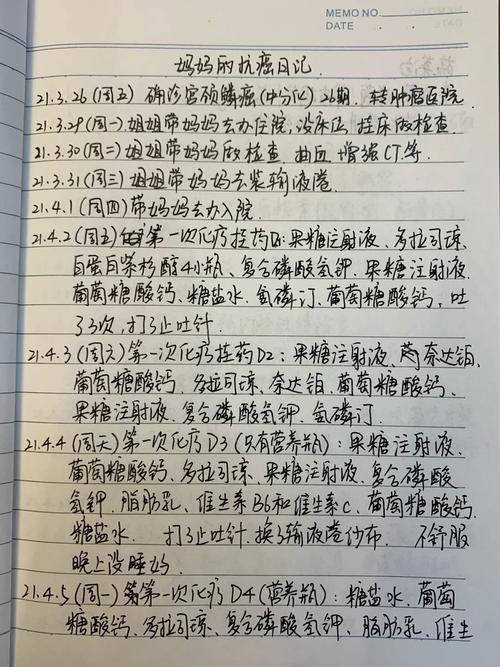 MEMO NO.
DATE
妈妈的抗癌日记
21.3.26(周五)确诊宫颈鳞癌(中分化)2b期.转肿瘤医院
21.3.29(周一)姐姐带妈妈去办住院,没床位,挂床做检查
21.3.30(周二)姐姐带妈妈做检查.抽血 增强CT等.
21.3.31(周三)姐姐带妈妈去装输液港
21.4.1(周四)带妈妈去办入院
21.4.2(周五)第一次化疗挂药D1:果糖注射液、多拉司琼、
白蛋白紫杉醇4小瓶、复合磷酸氢钾.果糖注射液.
葡萄糖酸钙、糖盐水.氨磷汀.葡萄糖酸钙,吐
了3次,打了止吐针
21.4.3(周六)第一次化疗挂药D2:果糖注射液、奈达铂、
葡萄糖酸钙、多拉司琼、奈达铂、葡萄糖酸钙、
果糖注射液.复合磷酸氢钾、氨磷汀.
21.4.4(周天)第一次化疗D3(只有营养瓶):果糖注射液.
葡萄糖酸钙、多拉司琼、果糖注射液.复合磷酸
氢钾.脂肪乳、维生素B6和维生素C、葡萄糖酸钙.
糖盐水. 打了止吐针.换了输液港纱布. 不舒服
晚上没睡好
21.4.5(周一)第一次化疗D4(营养瓶):糖盐水、葡萄
糖酸钙、多拉司琼、复合磷酸氢钾、脂肪乳、维生